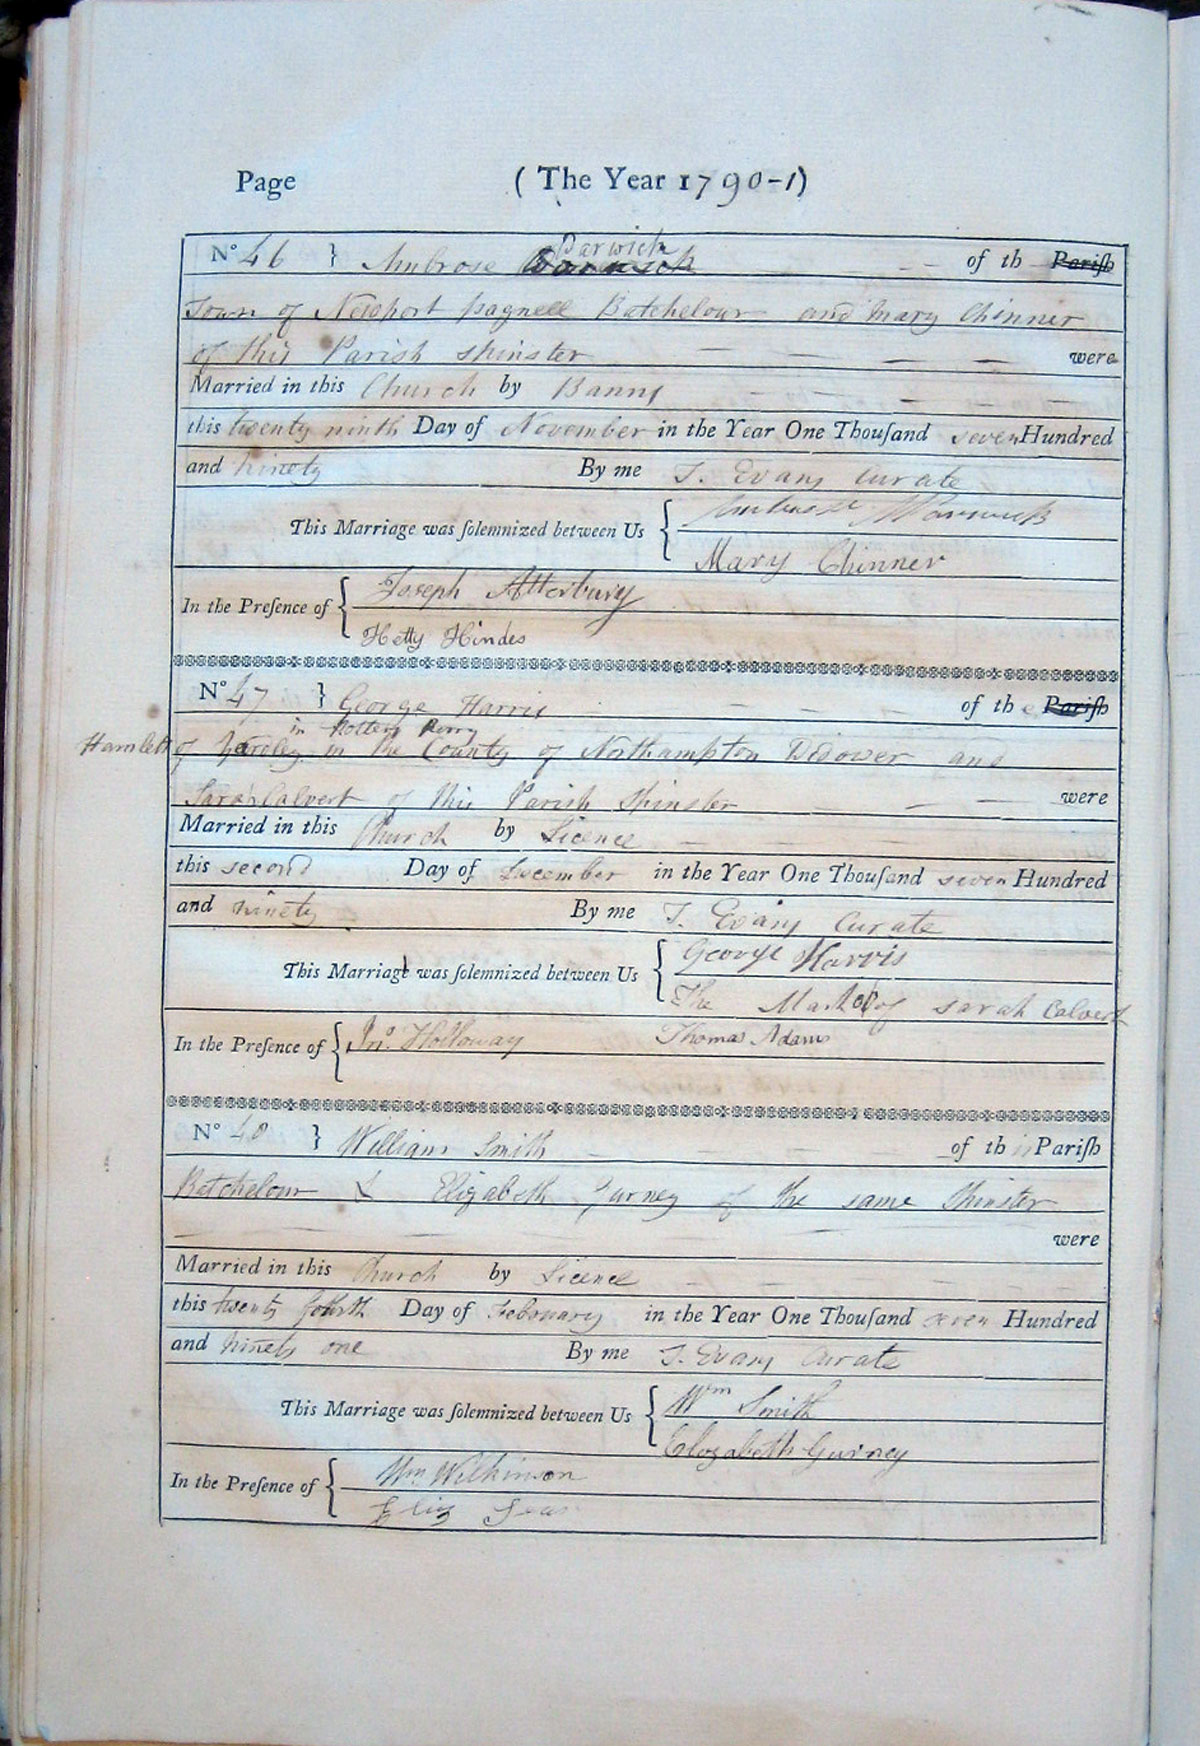 Page (The Year 1790-1)
Parwich
No 46 } Ambrose of th Parish
Town of Newport pagnell Batchelour and Mary Chinner
of this Parish spinster were
Married in this Church by Banns
this twenty ninth Day of November in the Year One Thouſand seven Hundred
and ninety By me T. Evans Curate
This Marriage was ſolemnized between Us { Ambrose
Mary Chinner
In the Preſence of { Joseph Atterbury
Hetty Hindes
No 47 } George Harris of the Parish
in Potters Perry
Hamlett of Yardley in the County of Northampton Widower and
Sarah Calvert of this Parish Spinster were
Married in this Church by Licence
this second Day of December in the Year One Thouſand seven Hundred
and ninety By me T. Evans Curate
This Marriage was ſolemnized between Us { George Harris
The Mark of Sarah Calvert
In the Preſence of { Jno. Holloway Thomas Adams
No 48 } William Smith of this Pariſh
Batchelour & Elizabeth Gurney of the same Spinster
were
Married in this Church by Licence
this twenty fourth Day of February in the Year One Thouſand seven Hundred
and ninety one By me T. Evans Curate
This Marriage was ſolemnized between Us { Wm Smith
Elizabeth Gurney
In the Preſence of { Wm. Wilkinson
Eliz